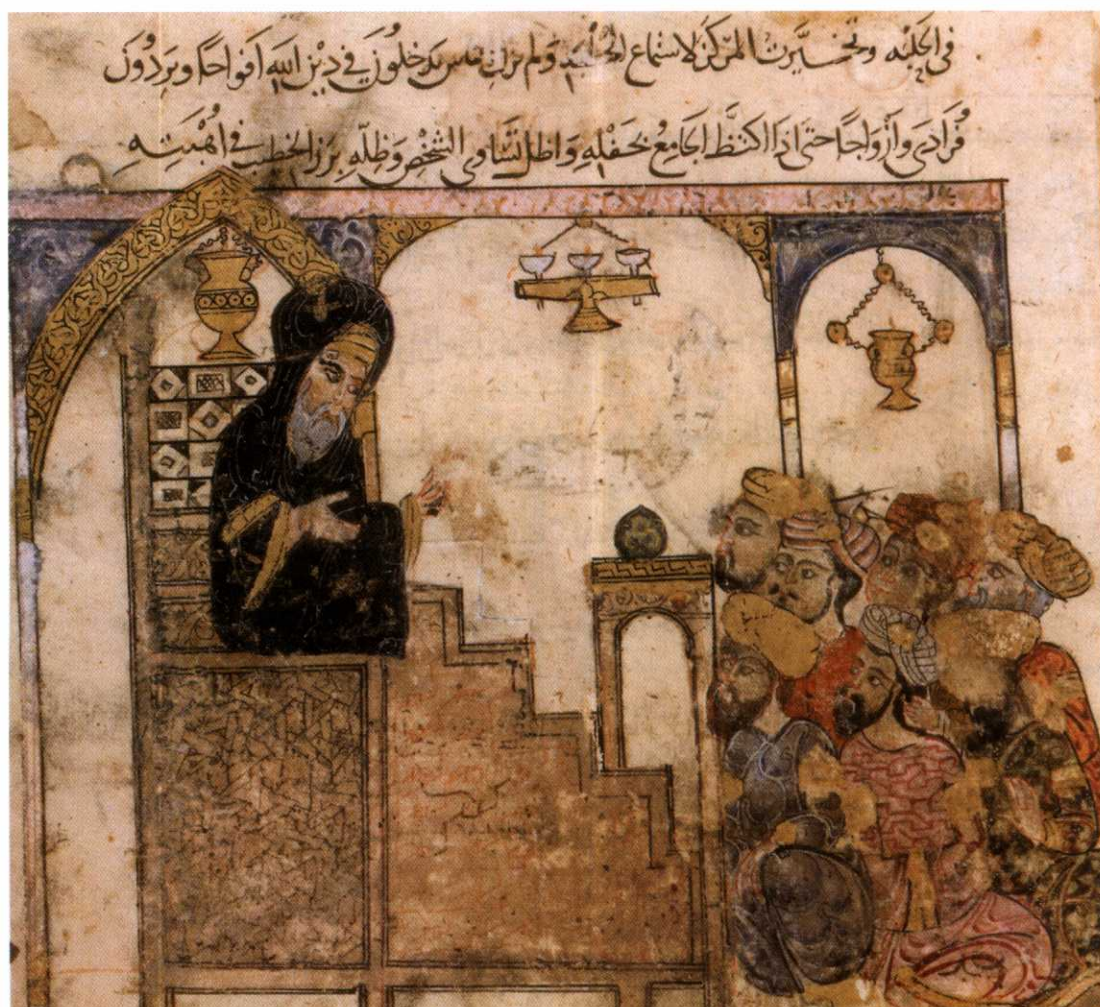 فى الحلبه وتخيَّرت المركز لاستماع الخطبه ولم يزل الناس يدخلون في دين الله افواجًا ويردُون
فُرَادَى وازْواجًا حتى اذا اكتظَّ الجامعُ بحَفلِهِ واظل تساوى الشخصِ وَظلِّهِ برز الخطيب في اهْبتِهِ